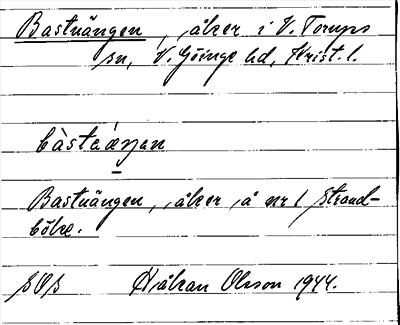 Bastuängen, åker i V. Torups
sn, V. Göinge hd, Krist. l.
bàstáeŋen
Bastuängen, åker å nr 1 Strand-
böke.
SOS Håkan Olsson 1944.